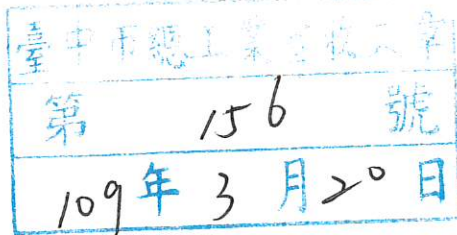 臺中市總工業會收文章
第 156 號
109年 3 月 20 日